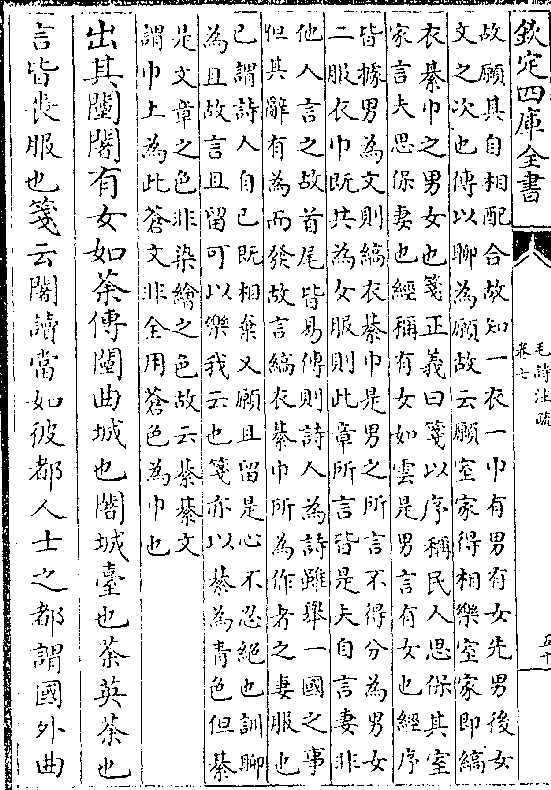 欽定四庫全書
毛詩注疏
卷七
五十
故願其自相配合故知一衣一巾有男有女先男後女
文之次也傳以聊為願故云願室家得相樂室家即縞
衣綦巾之男女也箋正義曰箋以序稱民人思保其室
家言夫思保妻也經稱有女如雲是男言有女也經序
皆據男為文則縞衣綦巾是男之所言不得分為男女
二服衣巾既共為女服則此章所言皆是夫自言妻非
他人言之故首尾皆易傳則詩人為詩雖舉一國之事
但其辭有為而發故言縞衣綦巾所為作者之妻服也
已謂詩人自已既相棄又願且留是心不忍絕也訓聊
為且故言且留可以樂我云也箋亦以綦為青色但綦
是文章之色非染繒之色故云綦綦文
謂巾上為此蒼文非全用蒼色為巾也
出其闉闍有女如荼傳闉曲城也闍城臺也荼英荼也
言皆喪服也箋云闍讀當如彼都人士之都謂國外曲